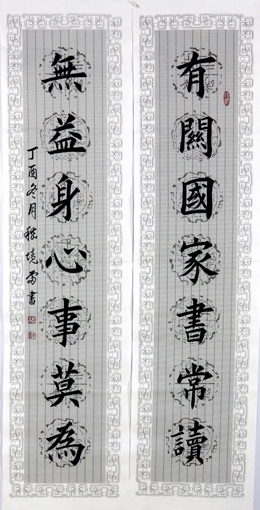 有關國家書常讀
無益身心事莫為
丁酉冬月
書